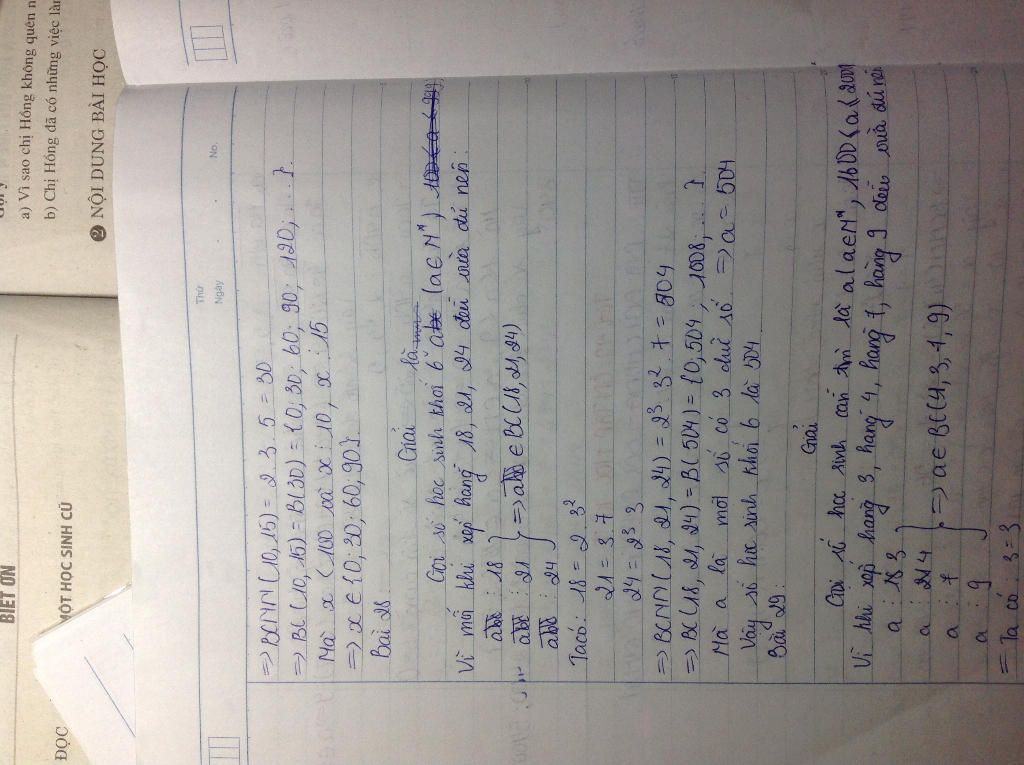 BIẾT ƠN
ĐỌC
MỘT HỌC SINH CŨ
a) Vì sao chị Hồng không quên
b) Chị Hồng đã có những việc
2 NỘI DUNG BÀI HỌC
Thứ
Ngày
No.
=> BCNN(10,15) = 2.3.5 = 30
=> BC(10,15) = B(30) = {0; 30; 60; 90; 120; ....}.
Mà x < 100 và x ⋮ 10, x ⋮ 15
=> x ∈ {0; 30; 60; 90}.
Bài 28:
Giải
Gọi số học sinh khối 6 là a (a ∈ N*)
Vì mỗi khi xếp hàng 18, 21, 24 đều vừa đủ nên:
⋮ 18
⋮ 21 => ∈ BC(18,21,24)
⋮ 24
Ta có: 18 = 2.3²
21 = 3.7
24 = 2³.3
=> BCNN(18, 21, 24) = 2³.3².7 = 504
=> BC(18, 21, 24) = B(504) = {0, 504, 1008; ....}.
Mà a là một số có 3 chữ số => a = 504
Vậy số học sinh khối 6 là 504
Bài 29:
Giải
Gọi số học sinh cần tìm là a (a ∈ N*, 1600 < a < 2000
Vì khi xếp hàng 3, hàng 4, hàng 7, hàng 9 đều vừa đủ nên
a ⋮ 3
a ⋮ 4
a ⋮ 7 => a ∈ BC(4, 3, 7, 9)
a ⋮ 9
= Ta có: 3 = 3